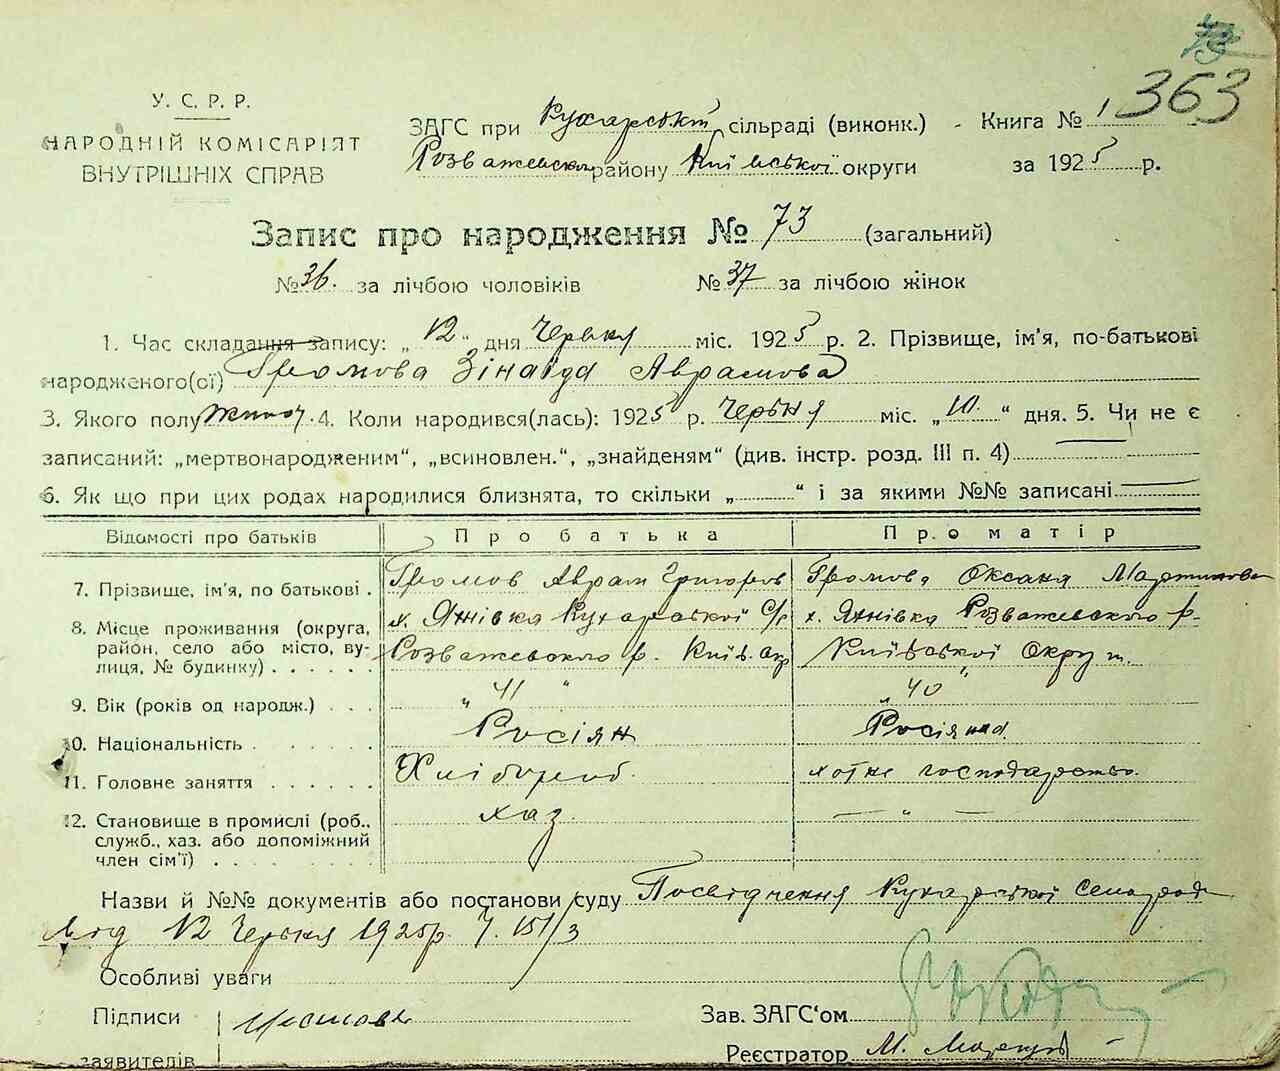 363
У. С. Р. Р.
НАРОДНІЙ КОМІСАРІЯТ
ВНУТРІШНІХ СПРАВ
ЗАГС при Кухарській сільраді (виконк.) Книга № 1
Розважевском району Київської округи за 1925 р.
Запис про народження № 73 (загальний)
№ 36. за лічбою чоловіків № 37 за лічбою жінок
1. Час складання запису: „ 12 “ дня Червня міс. 1925 р. 2. Прізвище, ім'я, по-батькові
народженого(ої) Громова Зінаїда Аврамова
3. Якого полу жіноч. 4. Коли народився(лась): 1925 р. Червня міс. „ 10. “ дня. 5. Чи не є
записаний: „мертвонародженим“, „всиновлен.“, „знайденям“ (див. інстр. розд. III п. 4)
6. Як що при цих родах народилися близнята, то скільки „ “ і за якими №№ записані
Відомості про батьків Про батька Про матір
7. Прізвище, ім'я, по батькові . Громов Аврам Григоров Громова Оксана Мартинова
8. Місце проживання (округа, х. Янівка Кухарської С/р х. Янівка Розважевского р.
район, село або місто, ву-
лиця, № будинку) . . . . . Розважевского р. Київ. окр Київської Округи.
9. Вік (років од народж.) . . . „ 41 “ „ 40 “
10. Національність . . . . . . Росіян Росіянка.
11. Головне заняття . . . . . . Хлібороб. хатнє господарство.
12. Становище в промислі (роб., хаз. — „ —
служб., хаз. або допоміжний
член сім'ї) . . . . . . . .
Назви й №№ документів або постанови суду Посвідчення Кухарської Сельради
від 12 Червня 1925р. Ч. 151/3
Особливі уваги
Підписи Зав. ЗАГС'ом
заявителів Реєстратор М.